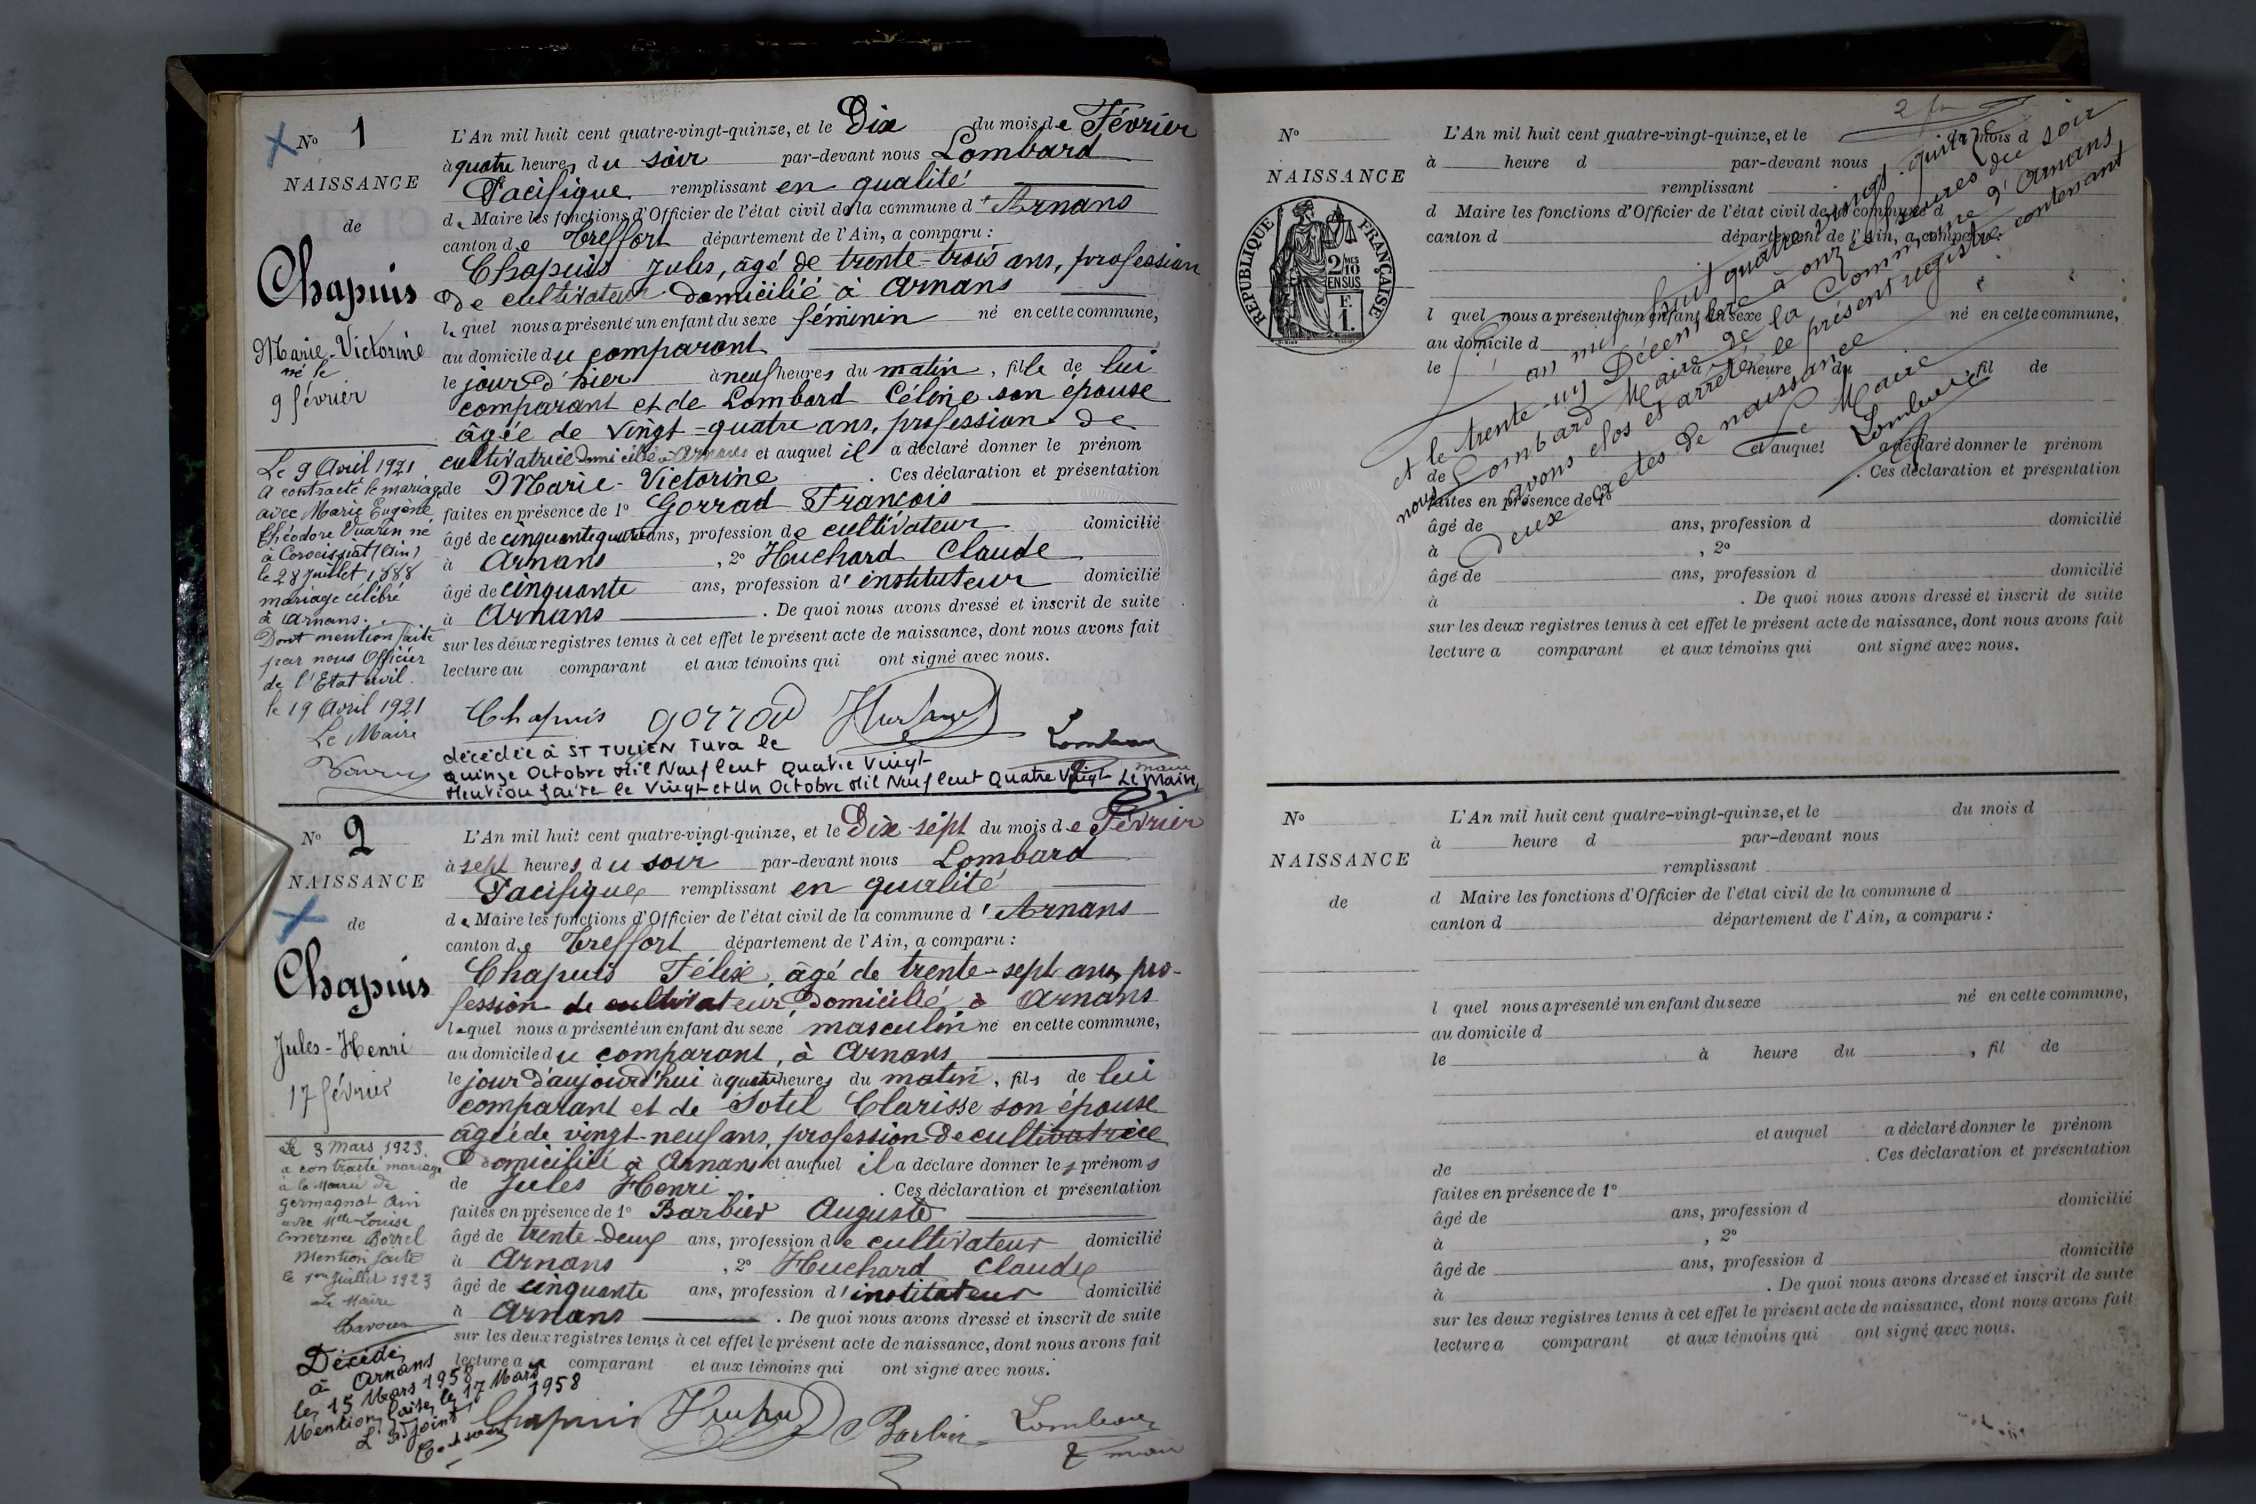 N° 1
NAISSANCE
de
Chapuis
Marie-Victorine
né le
9 février
Le 9 Avril 1921
a contracté le mariage
avec Marie Eugène
Théodore Vuarin né
à Corveissiat (Ain)
le 28 Juillet 1888
mariage célébré
à Arnans.
Dont mention faite
par nous Officier
de l'Etat civil
le 19 Avril 1921
Le Maire
L'An mil huit cent quatre-vingt-quinze, et le Dix du mois de Février
à quatre heures du soir par-devant nous Lombard
Pacifique remplissant en qualité
de Maire les fonctions d'Officier de l'état civil de la commune d'Arnans
canton de Treffort département de l'Ain, a comparu :
Chapuis Jules, âgé de trente-trois ans, profession
de cultivateur domicilié à Arnans
lequel nous a présenté un enfant du sexe féminin né en cette commune,
au domicile du comparant
le jour d'hier à neuf heures du matin, fille de lui
comparant et de Lombard Céline son épouse
âgée de vingt-quatre ans, profession de
cultivatrice domiciliée à Arnans et auquel il a déclaré donner le prénom
de Marie-Victorine . Ces déclaration et présentation
faites en présence de 1° Gorrad François
âgé de cinquante quatre ans, profession de cultivateur domicilié
à Arnans , 2° Huchard Claude
âgé de cinquante ans, profession d'instituteur domicilié
à Arnans . De quoi nous avons dressé et inscrit de suite
sur les deux registres tenus à cet effet le présent acte de naissance, dont nous avons fait
lecture au comparant et aux témoins qui ont signé avec nous.
Chapuis Gorrad Huchard
Lombard
maire
décédée à ST JULIEN Jura le
quinze Octobre Mil Neuf Cent Quatre Vingt
Mention faite le Vingt et Un Octobre Mil Neuf Cent Quatre Vingt Le Maire,
N° 2
NAISSANCE
de
Chapuis
Jules-Henri
17 février
Le 3 Mars 1923.
a contracté mariage
à la Mairie de
Germagnat Ain
avec Mlle Louise
Emerence Borrel
Mention faite
le 1er Juillet 1923
Le Maire
Décédé
à Arnans
le 15 Mars 1958
Mention faite le 17 Mars
1958
L'adjoint
L'An mil huit cent quatre-vingt-quinze, et le Dix-sept du mois de Février
à sept heures du soir par-devant nous Lombard
Pacifique remplissant en qualité
de Maire les fonctions d'Officier de l'état civil de la commune d'Arnans
canton de Treffort département de l'Ain, a comparu :
Chapuis Félix, âgé de trente-sept ans, pro-
fession de cultivateur, domicilié à Arnans
lequel nous a présenté un enfant du sexe masculin né en cette commune,
au domicile du comparant, à Arnans
le jour d'aujourd'hui à quatre heures du matin, fils de lui
comparant et de Sotil Clarisse son épouse
âgée de vingt-neuf ans, profession de cultivatrice
domiciliée à Arnans et auquel il a déclaré donner les prénoms
de Jules Henri . Ces déclaration et présentation
faites en présence de 1° Barbier Auguste
âgé de trente-deux ans, profession de cultivateur domicilié
à Arnans , 2° Huchard Claude
âgé de cinquante ans, profession d'instituteur domicilié
à Arnans . De quoi nous avons dressé et inscrit de suite
sur les deux registres tenus à cet effet le présent acte de naissance, dont nous avons fait
lecture au comparant et aux témoins qui ont signé avec nous.
Chapuis Huchard Barbier Lombard
maire
N°
NAISSANCE
RÉPUBLIQUE FRANÇAISE
2/10 MES EN SUS
F. 1.
L'An mil huit cent quatre-vingt-quinze, et le du mois d
à heure d par-devant nous
remplissant
d Maire les fonctions d'Officier de l'état civil de la commune d
canton d département de l'Ain, a comparu :
l quel nous a présenté un enfant du sexe né en cette commune,
au domicile d
le à heure du , fil de
et auquel a déclaré donner le prénom
de . Ces déclaration et présentation
faites en présence de 1°
âgé de ans, profession d domicilié
à , 2°
âgé de ans, profession d domicilié
à . De quoi nous avons dressé et inscrit de suite
sur les deux registres tenus à cet effet le présent acte de naissance, dont nous avons fait
lecture a comparant et aux témoins qui ont signé avec nous.
L'an mil huit quatre vingt quinze
et le trente-un Décembre à onze heures du soir
nous Lombard Maire de la Commune d'Arnans
avons clos et arrêté le présent registre contenant
deux actes de naissance
Le Maire
Lombard
N°
NAISSANCE
de
L'An mil huit cent quatre-vingt-quinze, et le du mois d
à heure d par-devant nous
remplissant
d Maire les fonctions d'Officier de l'état civil de la commune d
canton d département de l'Ain, a comparu :
l quel nous a présenté un enfant du sexe né en cette commune,
au domicile d
le à heure du , fil de
et auquel a déclaré donner le prénom
de . Ces déclaration et présentation
faites en présence de 1°
âgé de ans, profession d domicilié
à , 2°
âgé de ans, profession d domicilié
à . De quoi nous avons dressé et inscrit de suite
sur les deux registres tenus à cet effet le présent acte de naissance, dont nous avons fait
lecture a comparant et aux témoins qui ont signé avec nous.